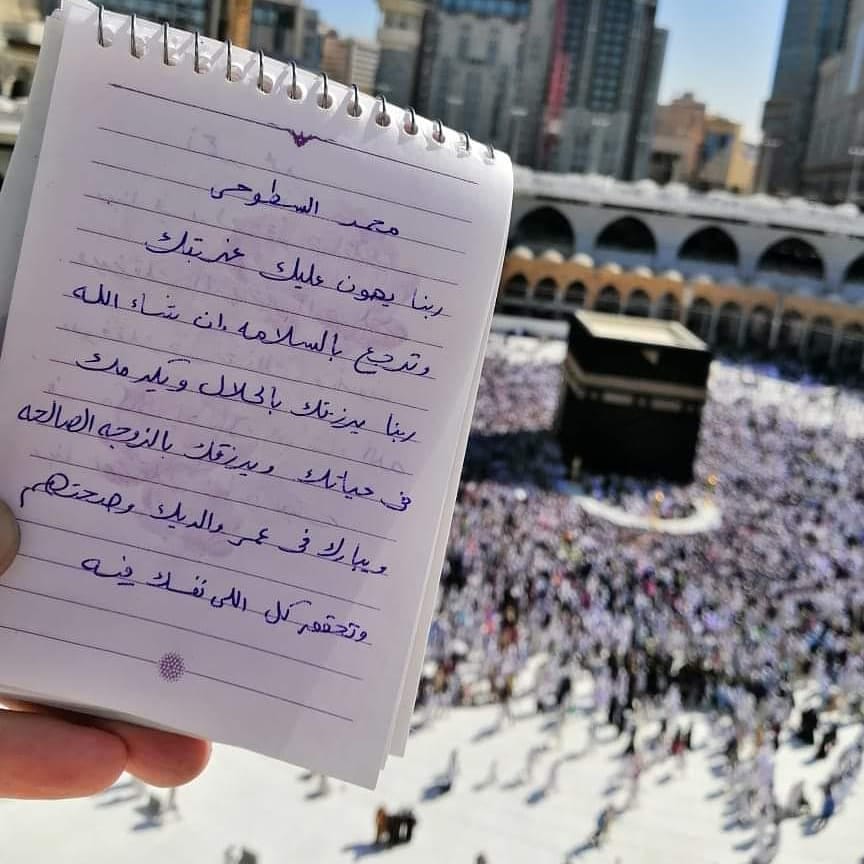 محمد السطوحى
ربنا يهون عليك غربتك
وترجع بالسلامه ان شاء الله
ربنا يرزقك بالحلال ويكرمك
فى حياتك ويرزقك بالزوجه الصالحه
ويبارك فى عمر والديك وصحتهم
وتحقق كل اللى نفسك فيه